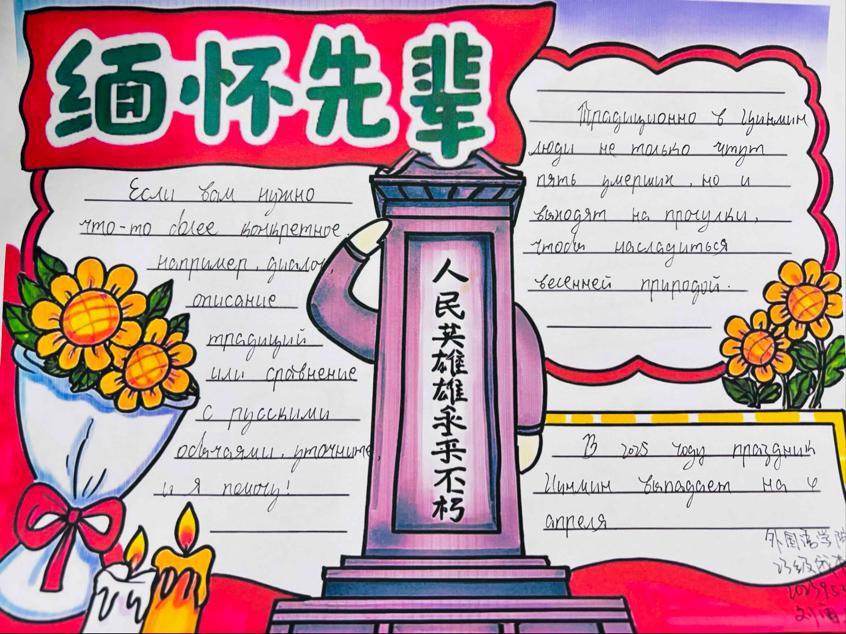 缅怀先辈
Если вам нужно
что-то более конкретное,
например, диалог
описание
традиций
или сравнение
с русскими
обычаями, уточните,
и я помогу!
人民英雄雄永乎不朽
Традиционно в Цинмин
люди не только чтут
пять умерших, но и
выходят на прочулки,
чтобы насладиться
весенней природой.
В 2025 году праздник
Цинмин выпадает на 4
апреля
外国语学院
23级